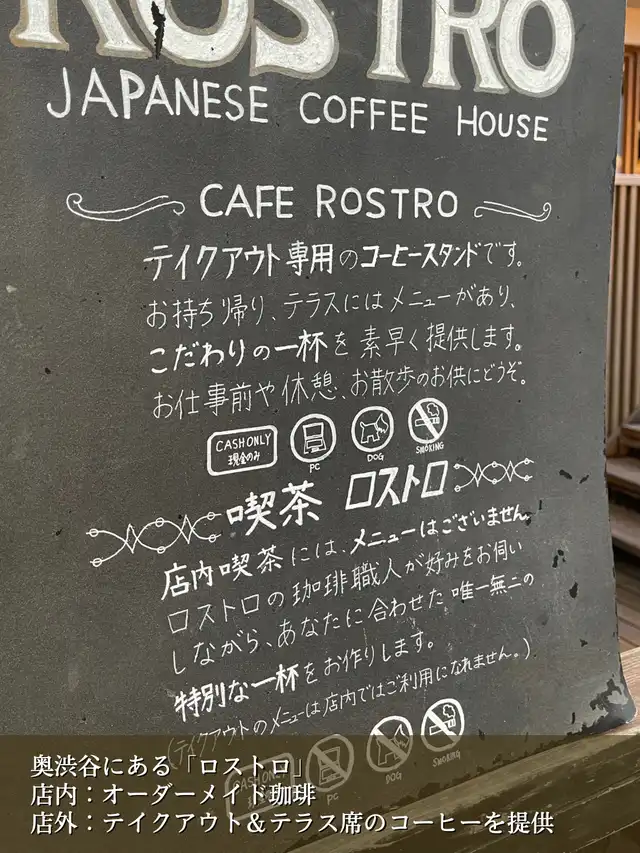 ROSTRO
JAPANESE COFFEE HOUSE
CAFE ROSTRO
テイクアウト専用のコーヒースタンドです。
お持ち帰り、テラスにはメニューがあり、
こだわりの一杯を素早く提供します。
お仕事前や休憩、お散歩のお供にどうぞ。
CASH ONLY
現金のみ
PC
DOG
SMOKING
喫茶 ロストロ
店内喫茶には、メニューはございません。
ロストロの珈琲職人が好みをお伺い
しながら、あなたに合わせた唯一無二の
特別な一杯をお作りします。
(テイクアウトのメニューは店内ではご利用になれません。)
CASH ONLY
PC
DOG
SMOKING
奥渋谷にある「ロストロ」
店内：オーダーメイド珈琲
店外：テイクアウト＆テラス席のコーヒーを提供